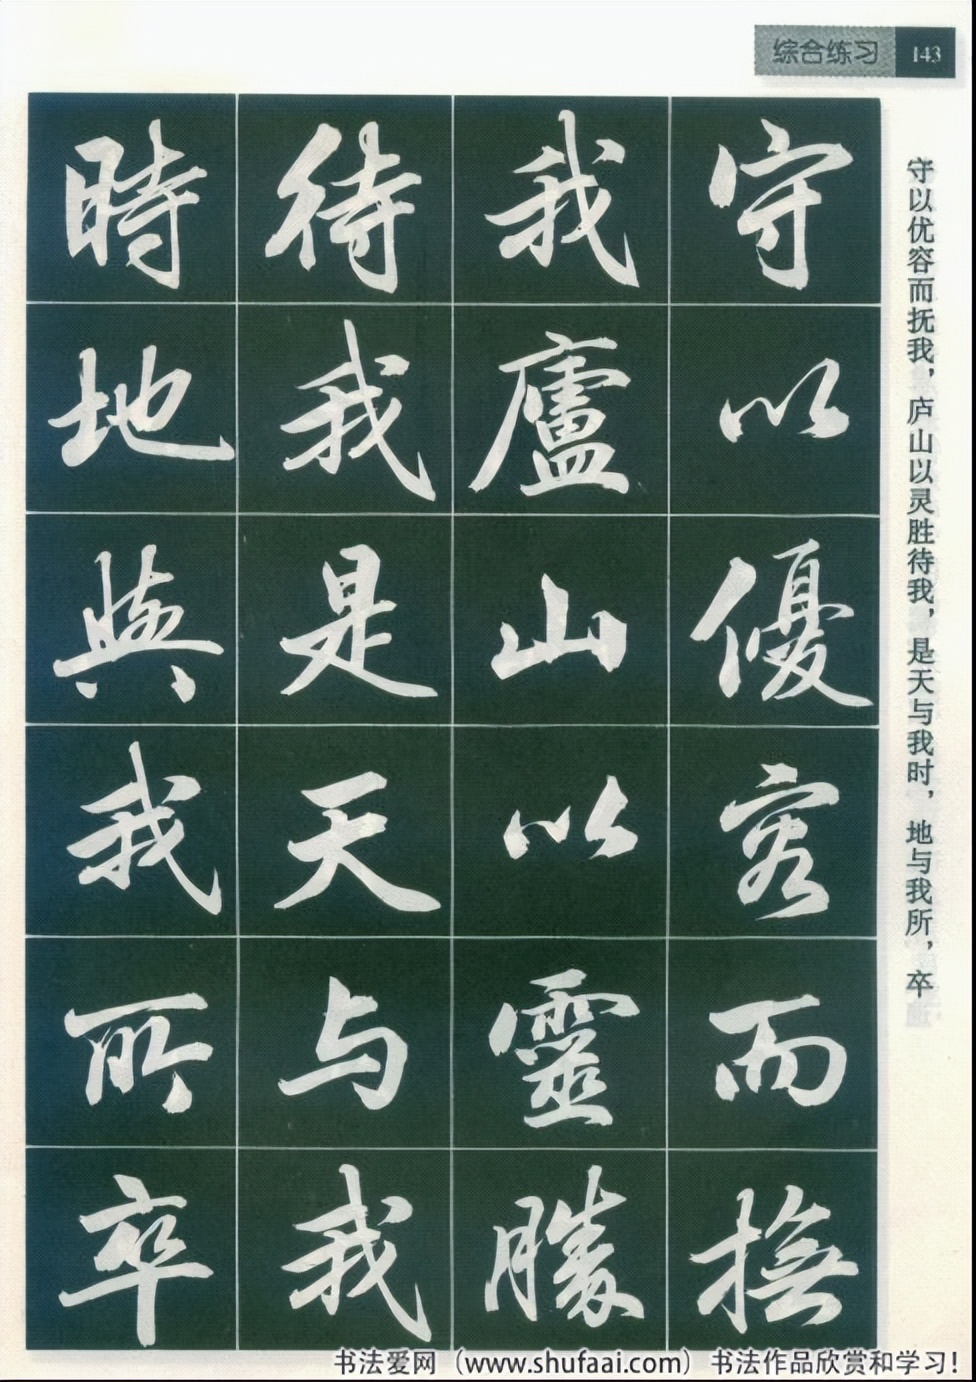 综合练习 143
守以优容而抚我，庐山以灵胜待我，是天与我时，地与我所，卒
守以優容而撫
我廬山以靈勝
待我是天与我
時地與我所卒
书法爱网（www.shufaai.com）书法作品欣赏和学习！